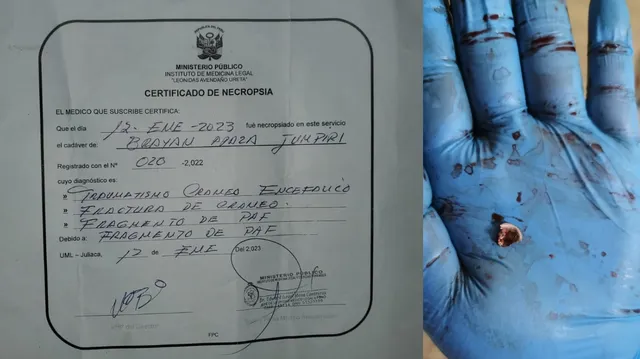 MINISTERIO PÚBLICO
INSTITUTO DE MEDICINA LEGAL
"LEONIDAS AVENDAÑO URETA"
CERTIFICADO DE NECROPSIA
EL MEDICO QUE SUSCRIBE CERTIFICA:
Que el día 12 - ENE - 2023 fué necropsiado en este servicio
el cadáver de: BRAYAN APAZA JUMPIRI
Registrado con el Nº 020 -2,022
cuyo diagnóstico es:
» TRAUMATISMO CRANEO ENCEFALICO
» FRACTURA DE CRANEO.
» FRAGMENTO DE PAF
Debido a: FRAGMENTO DE PAF
UML - Juliaca, 12 de ENE Del 2,023
MINISTERIO PÚBLICO
FPC